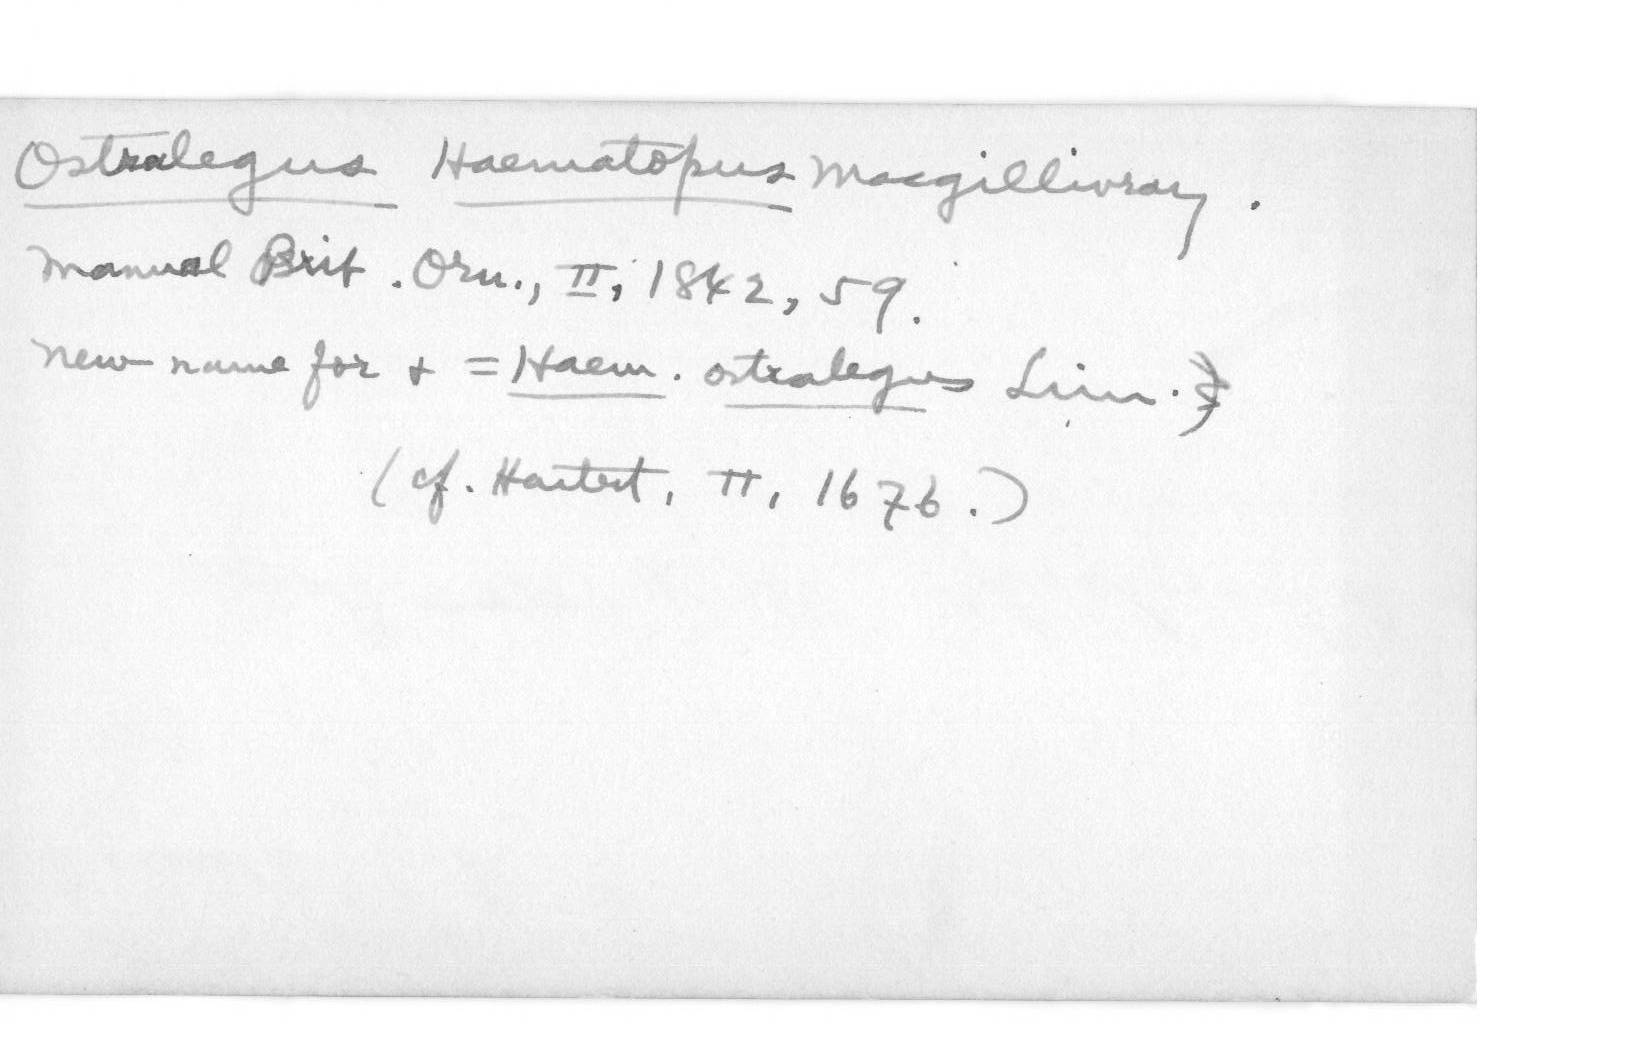 Ostralegus Haematopus Macgillivray.
Manual Brit. Orn., II, 1842, 59.
New name for & = Haem. ostralegus Linn.
(cf. Hartert, II, 1676.)